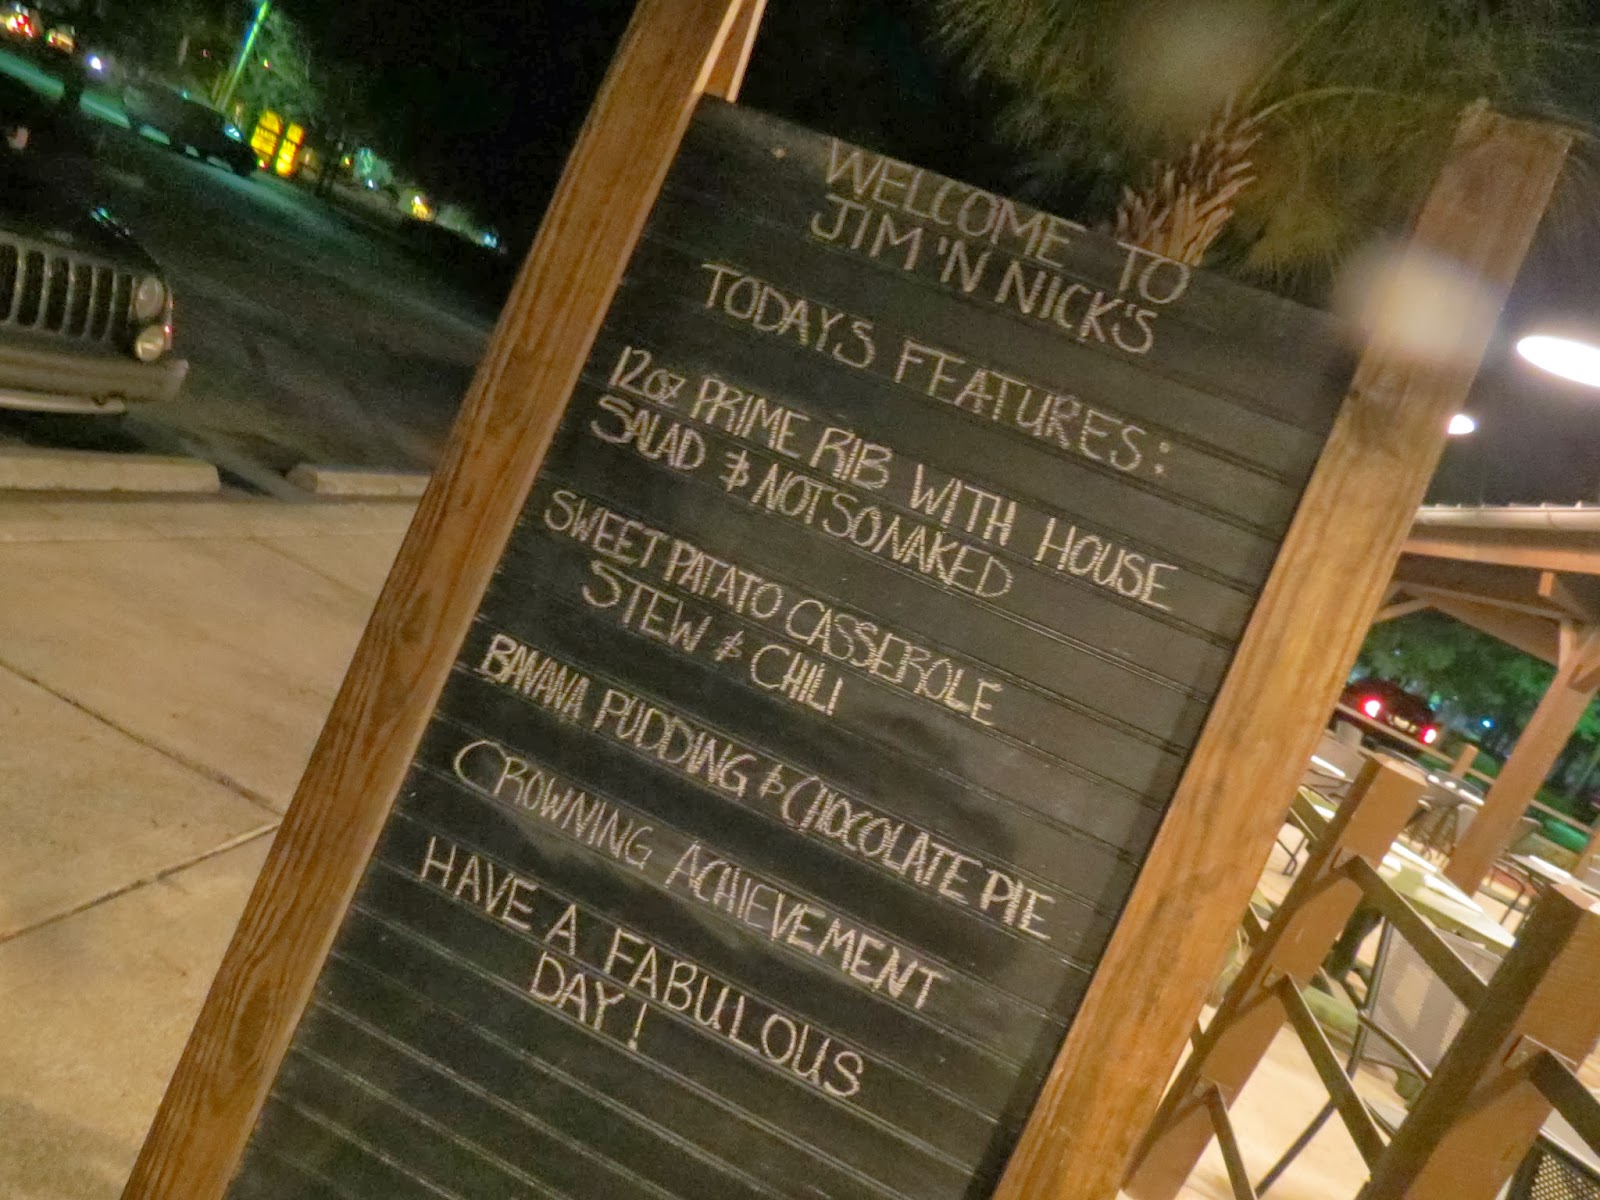 WELCOME TO
JIM 'N NICK'S
TODAYS FEATURES:
12oz PRIME RIB WITH HOUSE
SALAD & NOTSONAKED
SWEET PATATO CASSEROLE
STEW & CHILI
BANANA PUDDING & CHOCOLATE PIE
CROWNING ACHIEVEMENT
HAVE A FABULOUS
DAY!